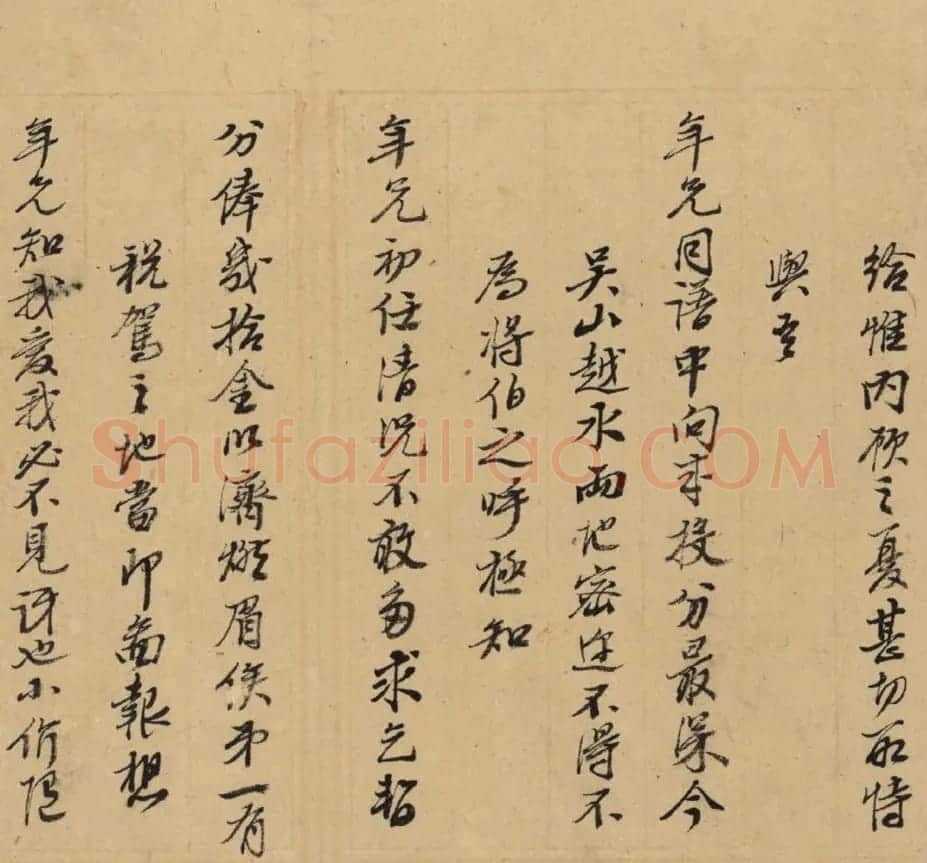 給惟內顧之憂甚切所恃
與吾
年兄同譜中向來投分最深今
吳山越水兩地密邇不得不
為將伯之呼極知
年兄初任清況不敢多求乞暫
分俸幾拾金以濟燃眉俟弟一有
稅駕之地當即圖報想
年兄知我愛我必不見訝也小价隨
Shufaziliao.COM